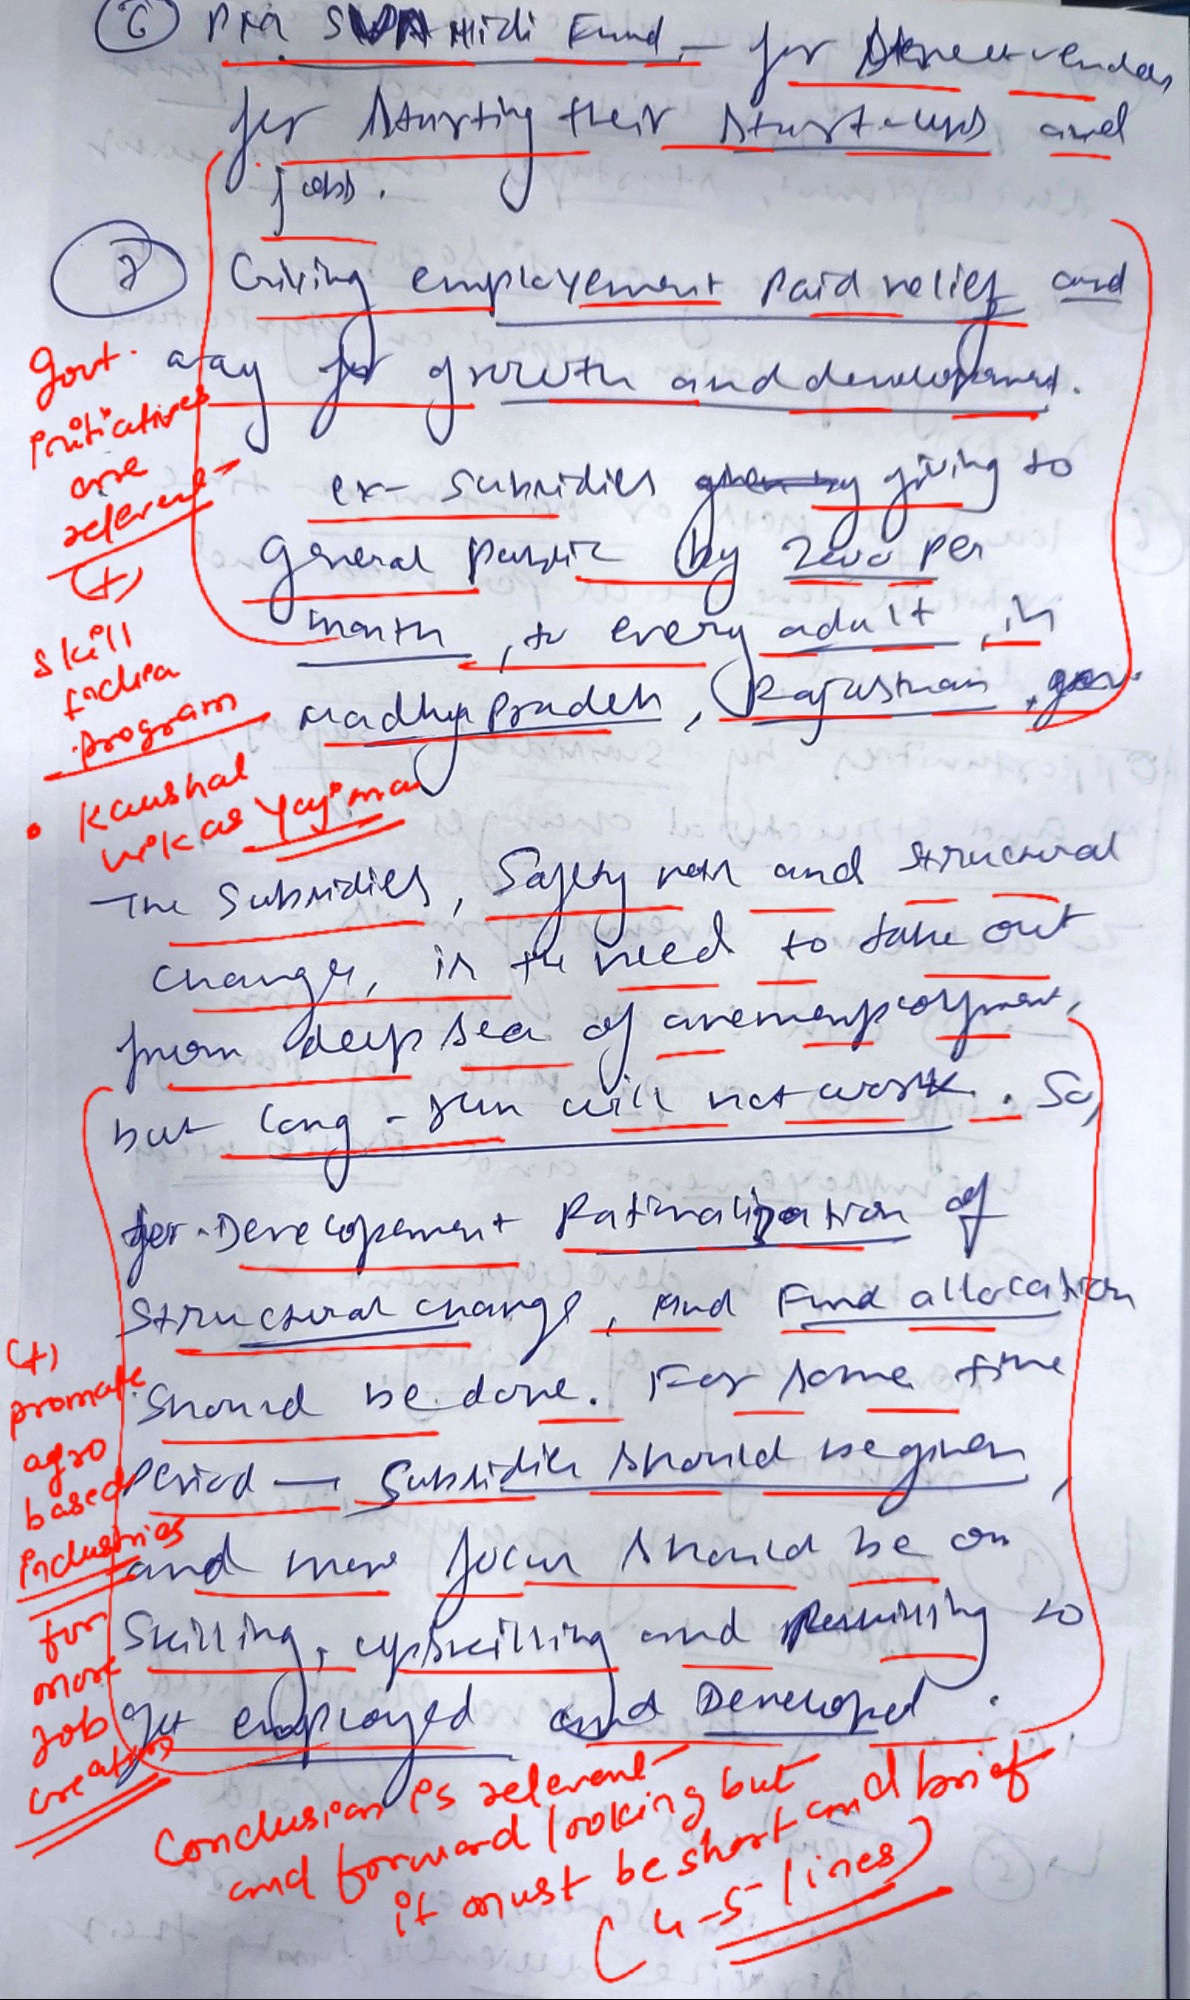 6 PM SVANidi Fund - for street vendors
for starting their start-ups and
jobs.
7 Giving employement paid relief and
way for growth and development.
ex- subsidies giving to
general public by 2000 per
month, to every adult, in
Madhya Pradesh, Rajasthan, gov.
Govt.
initiatives
are
relevent
(+)
skill
India
program
• Kaushal
vikas Yojana
The subsidies, Safety nets and structural
change, is the need to take out
from deep sea of
but long-run will not work. So,
for Developement Rationalization of
structural change, and Fund allocation
should be done. For some time
period — Subsidies should be given,
and more focus should be on
skilling, upskilling and reskilling to
get employed and Developed.
(+)
promote
agro
based
industries
for
more
Job
creation
Conclusion is relevent
and forward looking but
it must be short and brief
(4-5 lines)